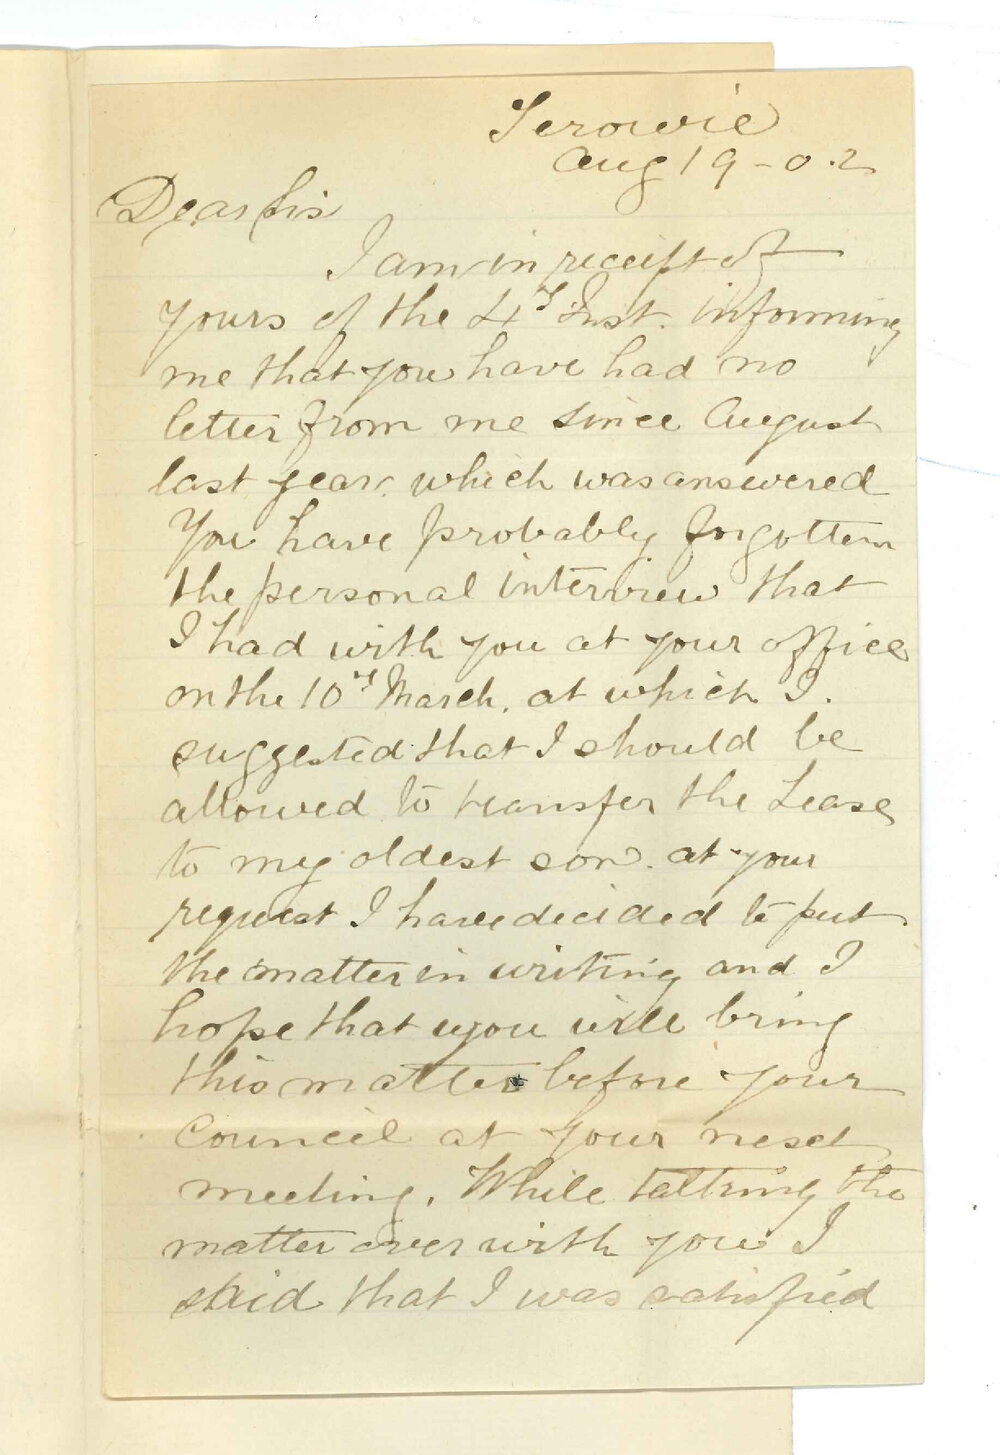 Terowie
Aug 19-0.2
Dear Sir
I am in receipt of
yours of the 4th Inst. informing
me that you have had no
letter from me since August
last year. which was answered
You have probably forgotten
the personal interview that
I had with you at your office
on the 10th March. at which I.
suggested that I should be
allowed to transfer the Lease
to my oldest son. at your
request I have decided to put
the matter in writing and I
hope that you will bring
this matter before your
Council at your next
meeting. While talking the
matter over with you I
said that I was satisfied